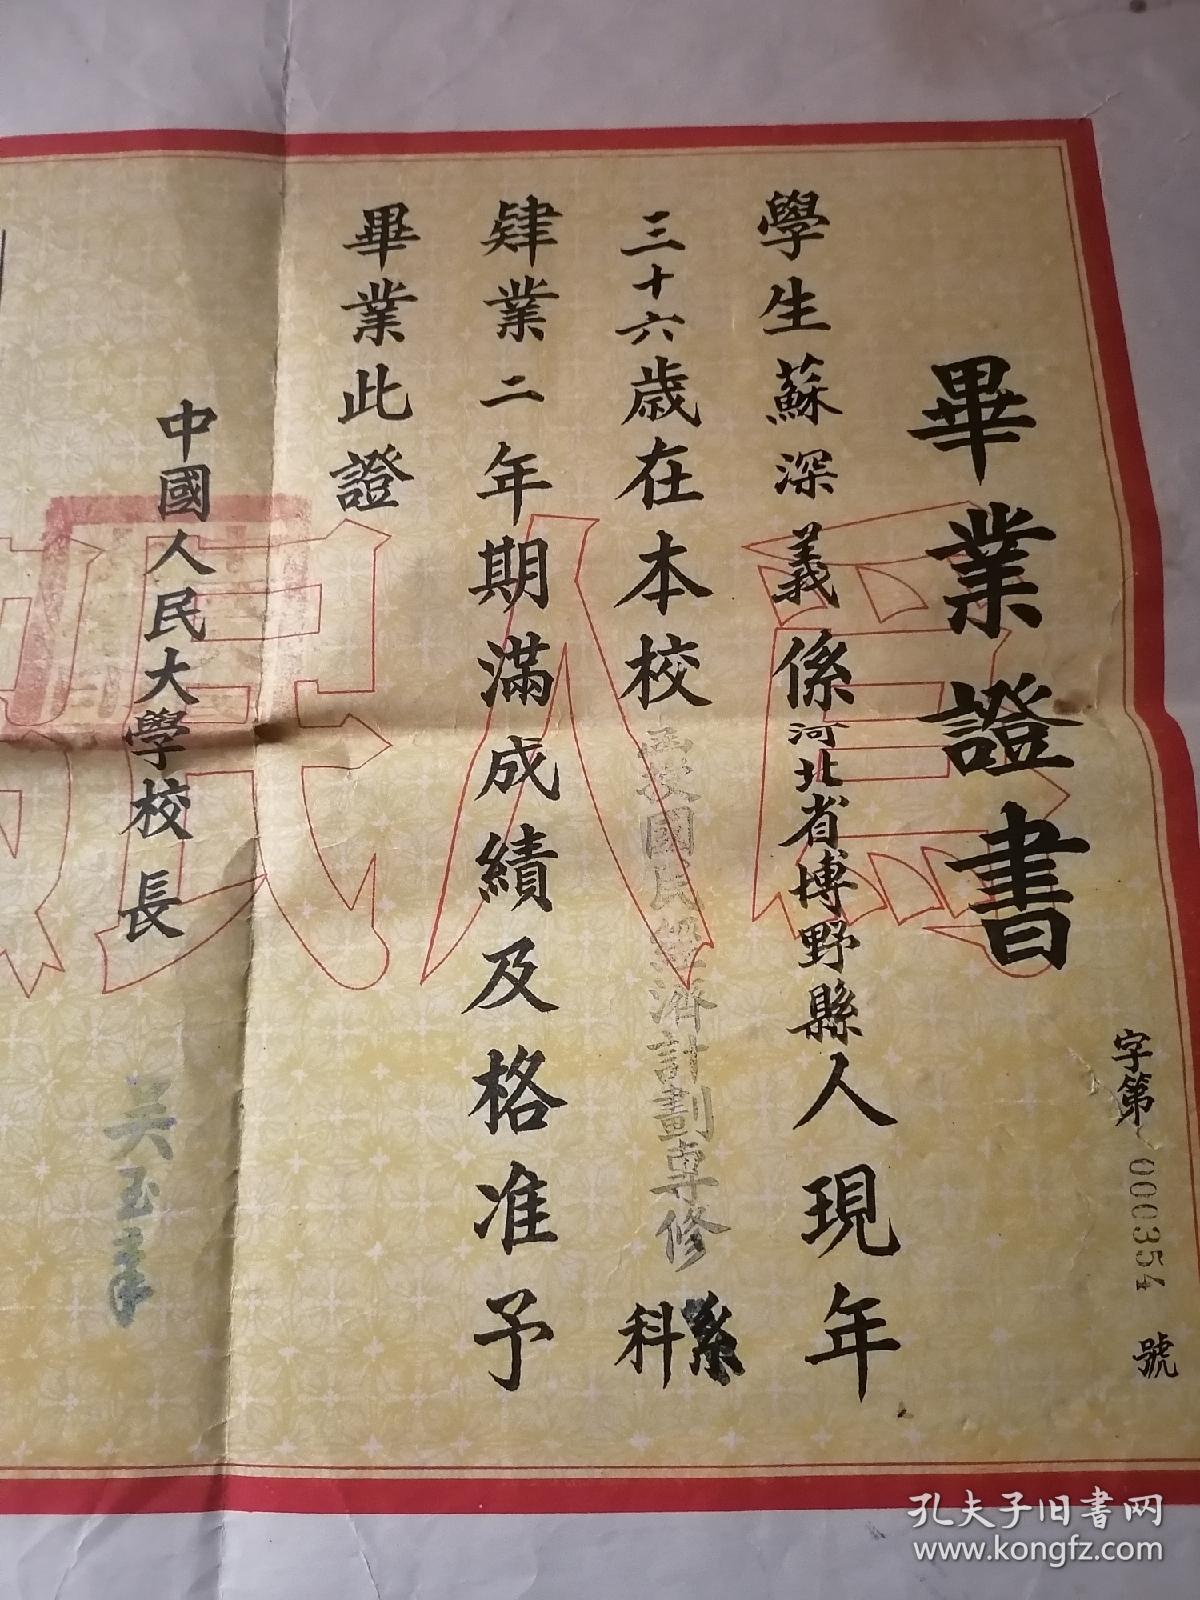 畢業證書
字第 000354 號
學生蘇深義係河北省博野縣人現年
三十六歲在本校函授國民經濟計劃專修系科
肄業二年期滿成績及格准予
畢業此證
中國人民大學校長
吴玉章
為人民服
孔夫子旧书网
www.kongfz.com